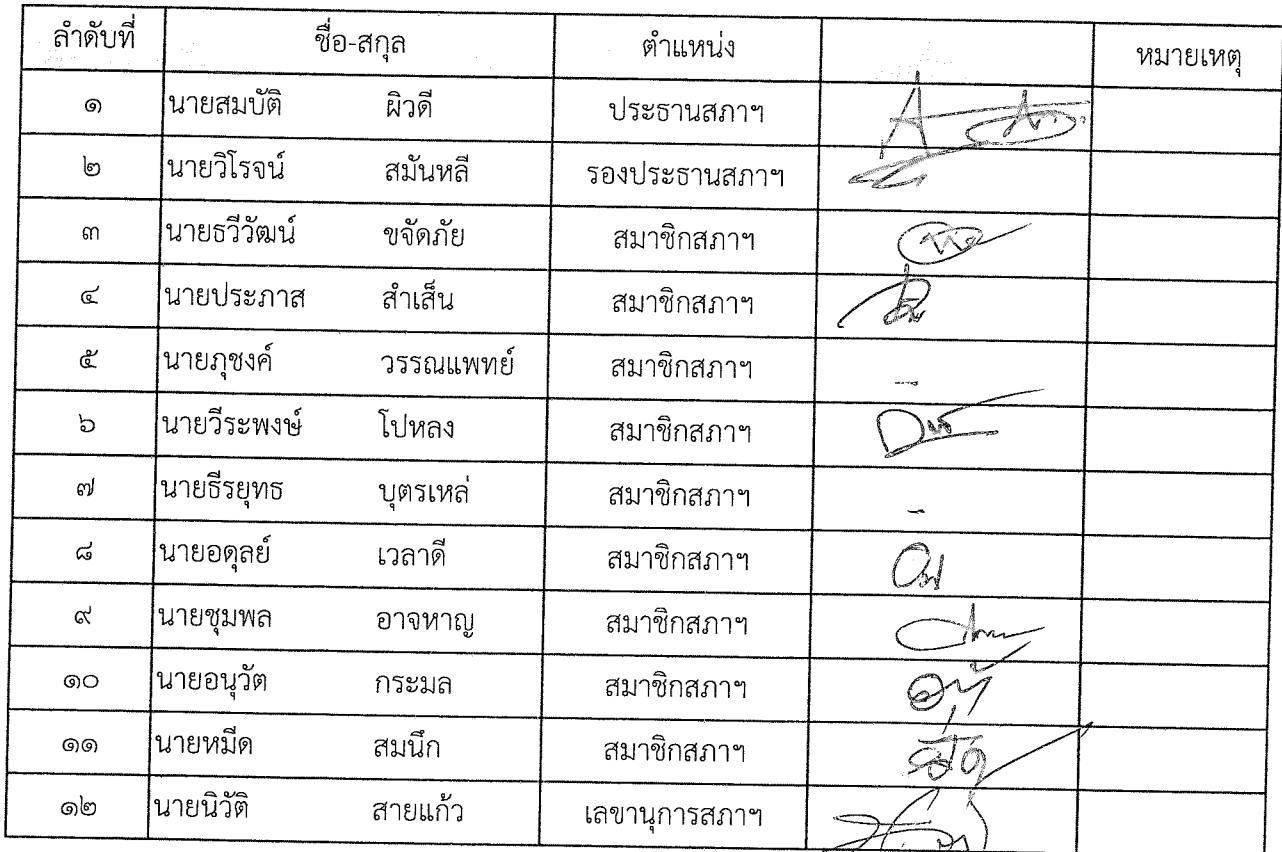 ลำดับที่ ชื่อ-สกุล ตำแหน่ง หมายเหตุ
๑ นายสมบัติ ผิวดี ประธานสภาฯ
๒ นายวิโรจน์ สมันหลี รองประธานสภาฯ
๓ นายธวีวัฒน์ ขจัดภัย สมาชิกสภาฯ
๔ นายประภาส สำเส็น สมาชิกสภาฯ
๕ นายภุชงค์ วรรณแพทย์ สมาชิกสภาฯ -
๖ นายวีระพงษ์ โปหลง สมาชิกสภาฯ
๗ นายธีรยุทธ บุตรเหล่ สมาชิกสภาฯ -
๘ นายอดุลย์ เวลาดี สมาชิกสภาฯ
๙ นายชุมพล อาจหาญ สมาชิกสภาฯ
๑๐ นายอนุวัต กระมล สมาชิกสภาฯ
๑๑ นายหมีด สมนึก สมาชิกสภาฯ
๑๒ นายนิวัติ สายแก้ว เลขานุการสภาฯ